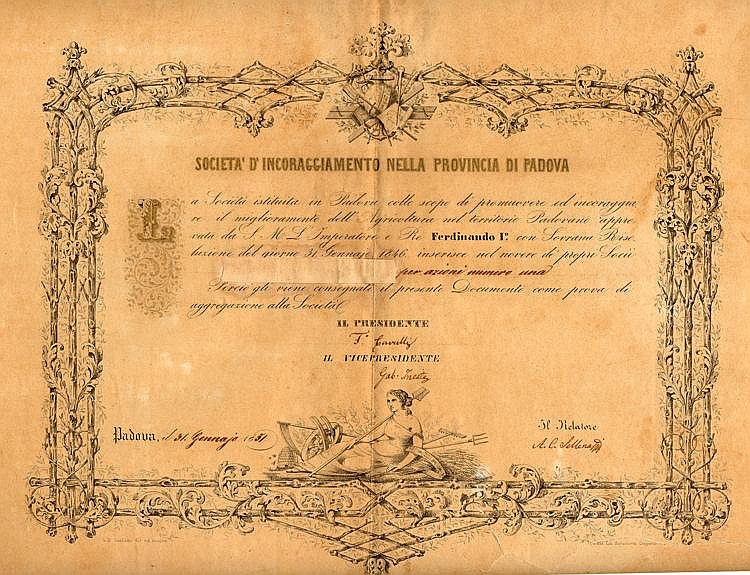 SOCIETA' D'INCORAGGIAMENTO NELLA PROVINCIA DI PADOVA
La Società istituita in Padova collo scopo di promuovere ed incoraggia
re il miglioramento dell'Agricoltura nel territorio Padovano appro
vata da S. M. L'Imperatore e Re Ferdinando I.º con Sovrana Riso
luzione del giorno 31 Gennajo 1846, inserisce nel novero de' propri Socii
per azioni numero una
Perciò gli viene consegnato il presente Documento come prova di
aggregazione alla Società.
IL PRESIDENTE
F. Cavalli
IL VICEPRESIDENTE
Gab.
Il Relatore
Padova, il 31. Gennajo 1851
A. C.